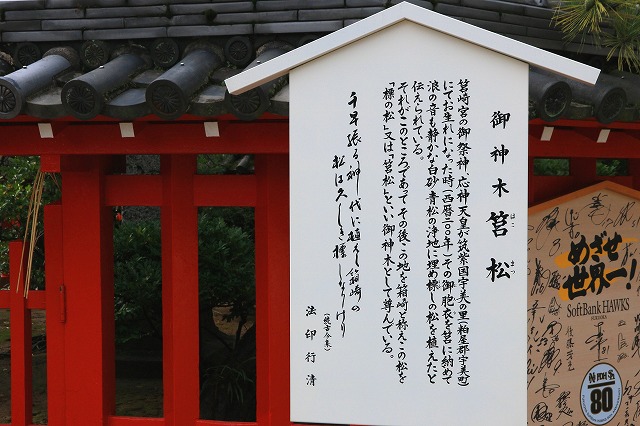 御神木筥松
はこ まつ
筥崎宮の御祭神、応神天皇が筑紫国宇美の里(粕屋郡宇美町)
にてお生れになった時(西暦二〇〇年)その御胞衣を筥に納めて
浪の音も静かな白砂青松の浄地に埋め標しの松を植えたと
伝えられている。
それがこのところであって、その後、この地を箱崎と称え、この松を
「標の松」又は「筥松」といい御神木として尊んでいる。
千早振る神代に植えし箱崎の
松は久しき標しなりけり
(続古今集)
法印行清
めざせ
世界一!
SoftBank HAWKS
FUKUOKA
80